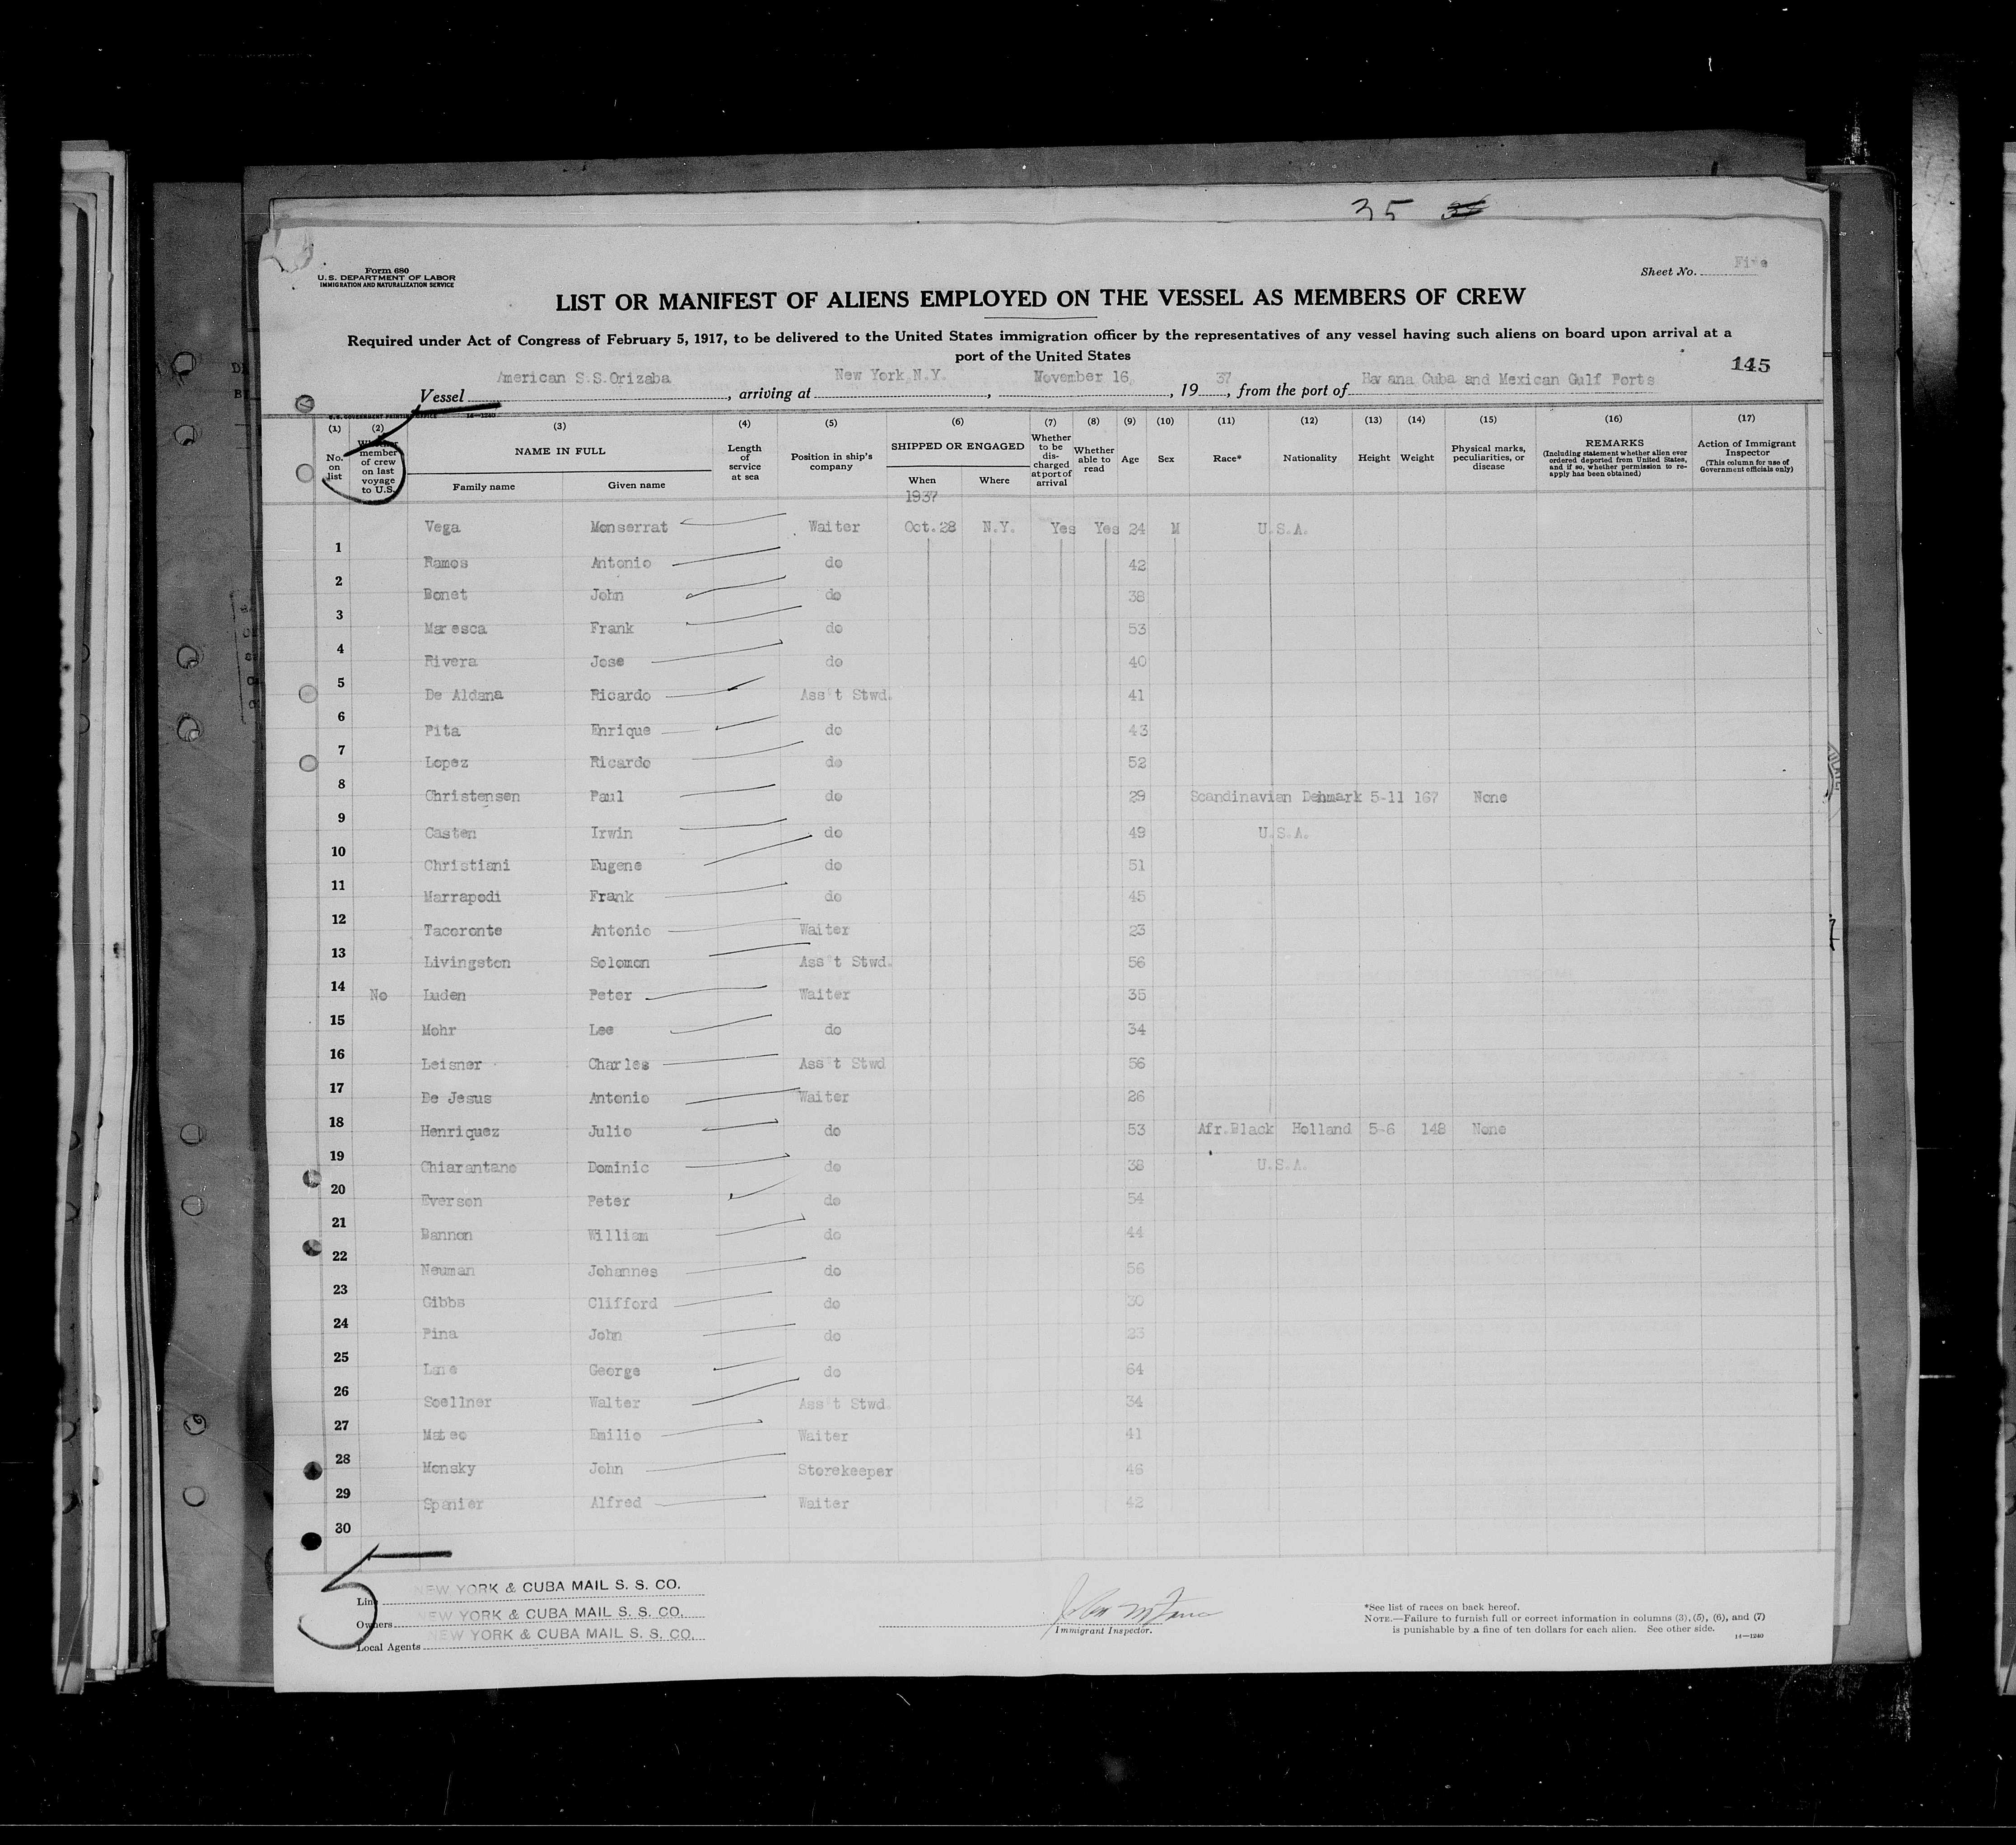 35 35
Form 680
U. S. DEPARTMENT OF LABOR
IMMIGRATION AND NATURALIZATION SERVICE
Sheet No. Five
LIST OR MANIFEST OF ALIENS EMPLOYED ON THE VESSEL AS MEMBERS OF CREW
Required under Act of Congress of February 5, 1917, to be delivered to the United States immigration officer by the representatives of any vessel having such aliens on board upon arrival at a
port of the United States
145
Vessel American S.S.Orizaba, arriving at New York,N.Y., November 16, 1937, from the port of Havana Cuba and Mexican Gulf Ports
U.S. GOVERNMENT PRINTING OFFICE 14—1240
(1) (2) (3) (4) (5) (6) (7) (8) (9) (10) (11) (12) (13) (14) (15) (16) (17)
No. on list
Whether member of crew on last voyage to U.S.
NAME IN FULL
Family name Given name
Length of service at sea
Position in ship's company
SHIPPED OR ENGAGED
When Where
Whether to be discharged at port of arrival
Whether able to read
Age
Sex
Race*
Nationality
Height
Weight
Physical marks, peculiarities, or disease
REMARKS
(Including statement whether alien ever ordered deported from United States, and if so, whether permission to reapply has been obtained)
Action of Immigrant Inspector
(This column for use of Government officials only)
1937
Vega Monserrat Waiter Oct.28 N.Y. Yes Yes 24 M U.S.A.
1
Ramos Antonio do 42
2
Bonet John do 38
3
Maresca Frank do 53
4
Rivera Jose do 40
5
De Aldana Ricardo Ass't Stwd. 41
6
Pita Enrique do 43
7
Lopez Ricardo do 52
8
Christensen Paul do 29 Scandinavian Denmark 5-11 167 None
9
Casten Irwin do 49 U.S.A.
10
Christiani Eugene do 51
11
Marrapodi Frank do 45
12
Tacoronte Antonio Waiter 23
13
Livingston Solomon Ass't Stwd. 56
14
No Luden Peter Waiter 35
15
Mohr Lee do 34
16
Leisner Charles Ass't Stwd 56
17
De Jesus Antonio Waiter 26
18
Henriquez Julio do 53 Afr.Black Holland 5-6 148 None
19
Chiarantano Dominic do 38 U.S.A.
20
Everson Peter do 54
21
Bannon William do 44
22
Neuman Johannes do 56
23
Gibbs Clifford do 30
24
Pina John do 23
25
Lane George do 64
26
Soellner Walter Ass't Stwd. 34
27
Mateo Emilio Waiter 41
28
Monsky John Storekeeper 46
29
Spanier Alfred Waiter 42
30
5
Line NEW YORK & CUBA MAIL S. S. CO.
Owners NEW YORK & CUBA MAIL S. S. CO.
Local Agents NEW YORK & CUBA MAIL S. S. CO.
Immigrant Inspector.
*See list of races on back hereof.
NOTE.—Failure to furnish full or correct information in columns (3), (5), (6), and (7)
is punishable by a fine of ten dollars for each alien. See other side.
14—1240